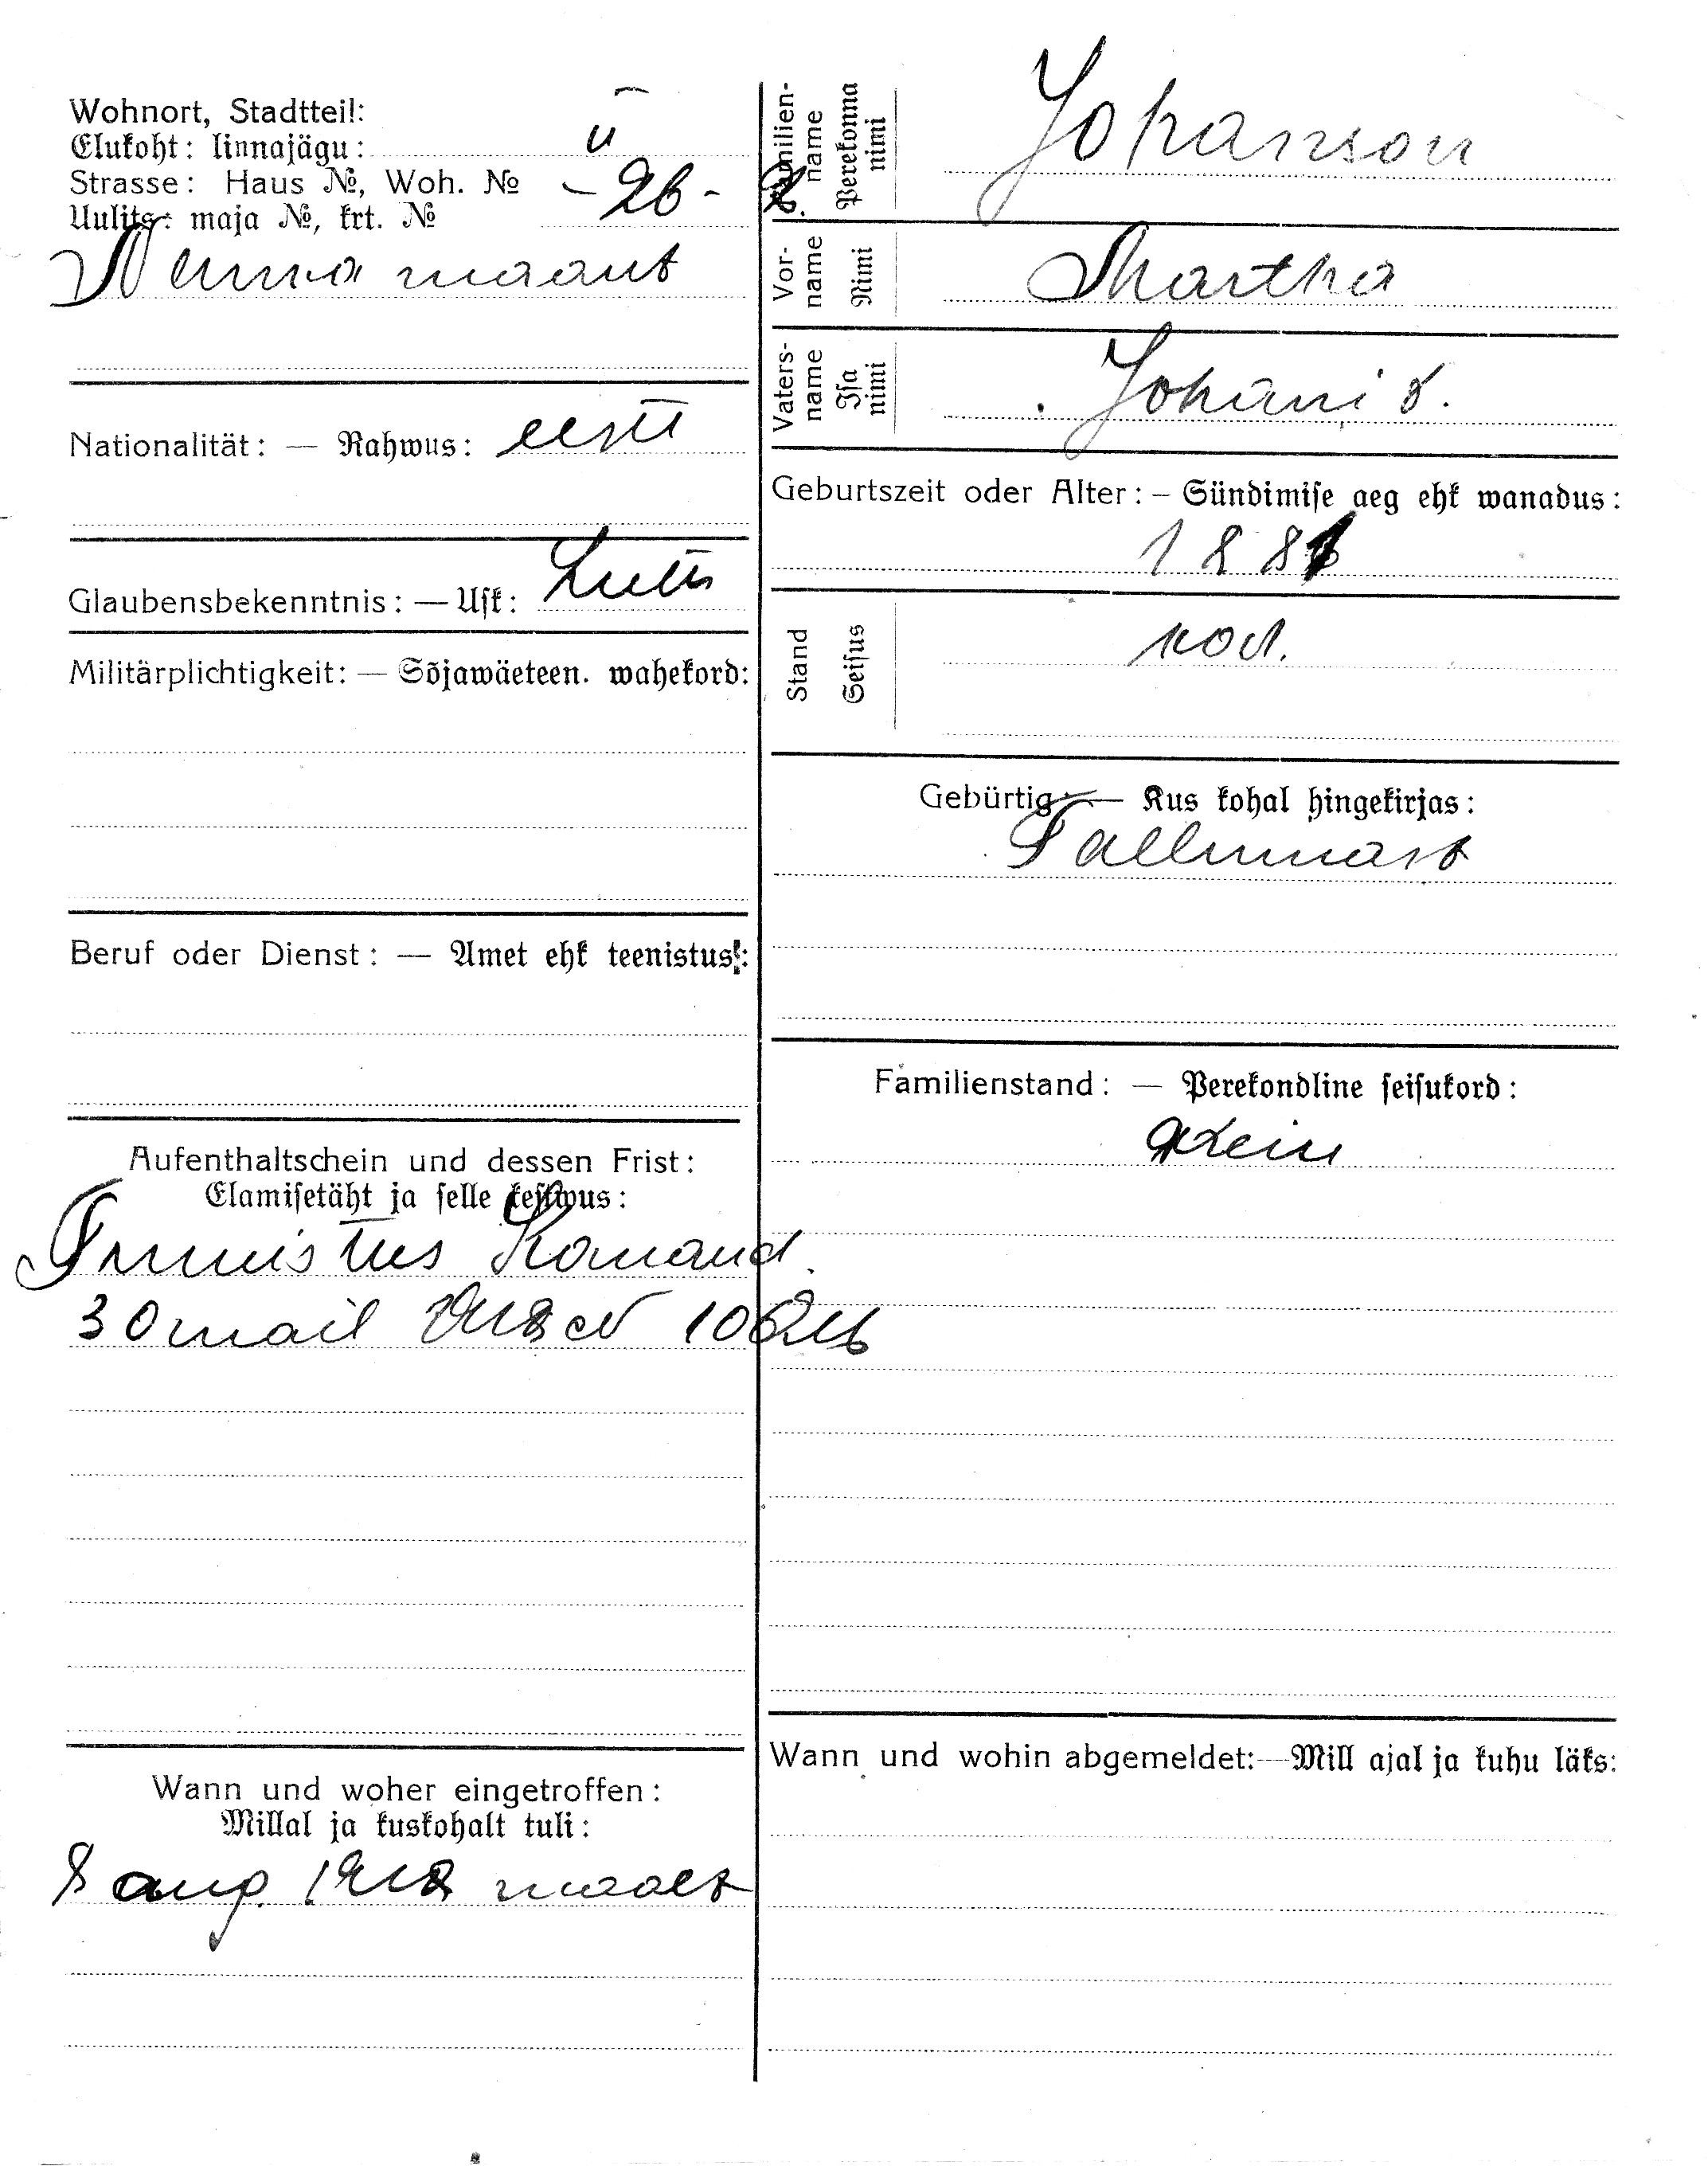 Wohnort, Stadtteil:
Elukoht: linnajägu: II
Strasse: Haus №, Woh. № - 26 - 2.
Uulits: maja №, krt. №
Narva maant
Nationalität: — Rahwus: eesti
Glaubensbekenntnis: — Usk: Luth
Militärplichtigkeit: — Sõjawäeteen. wahekord:
Beruf oder Dienst: — Amet ehk teenistus:
Aufenthaltschein und dessen Frist:
Elamisetäht ja selle kestwus:
Tunnistus Komand.
30 mail 1918
Wann und woher eingetroffen:
Millal ja kuskohalt tuli:
8 aug. 1918 maalt
Familien-name Perekonna nimi Johanson
Vor-name Nimi Martha
Vaters-name Isa nimi Johani t.
Geburtszeit oder Alter: – Sündimise aeg ehk wanadus:
1881
Stand Seisus kod.
Gebürtig: — Kus kohal hingekirjas:
Tallinnast
Familienstand: — Perekondline seisukord:
Wann und wohin abgemeldet: — Mill ajal ja kuhu läks: